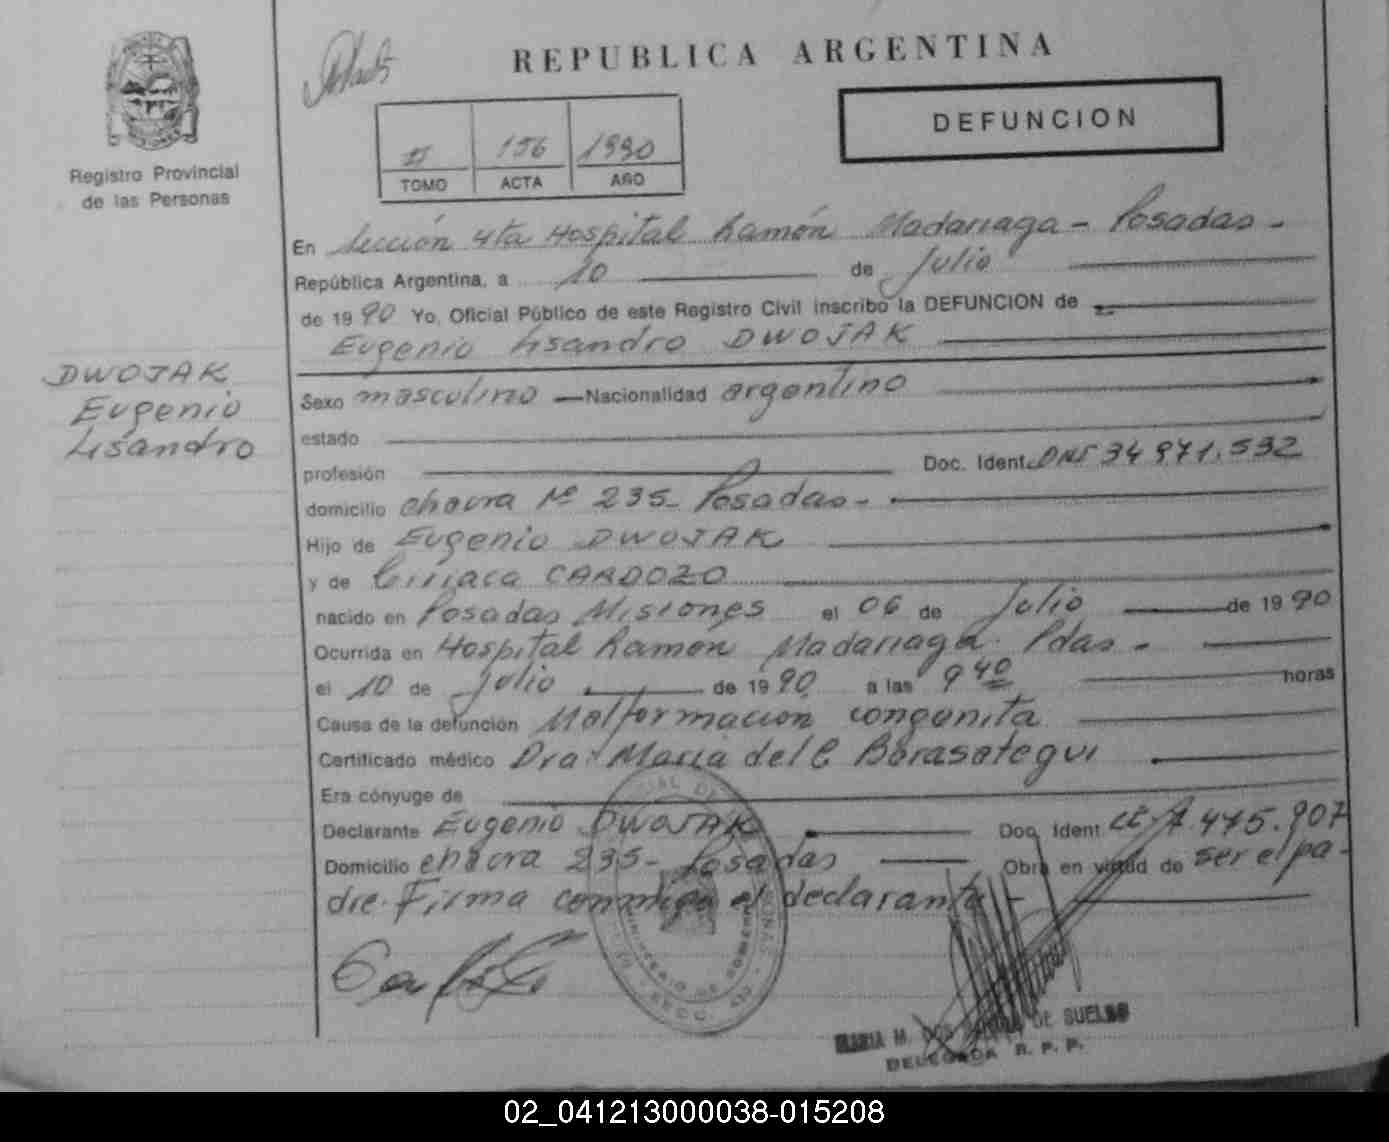 REPUBLICA ARGENTINA
DEFUNCION
II 156 1990
TOMO ACTA AÑO
Registro Provincial
de las Personas
En Sección 4ta Hospital Ramón Madariaga - Posadas -
República Argentina, a 10 de Julio
de 1990 Yo, Oficial Público de este Registro Civil inscribo la DEFUNCION de
Eugenio Lisandro DWOJAK
DWOJAK
Eugenio
Lisandro
Sexo masculino Nacionalidad argentino
estado
profesión Doc. Ident. DNI 34 971.532
domicilio chacra Nº 235 - Posadas -
Hijo de Eugenio DWOJAK
y de Ciriaca CARDOZO
nacido en Posadas Misiones el 06 de Julio de 1990
Ocurrida en Hospital Ramón Madariaga Pdas -
el 10 de Julio de 1990 a las 9 40 horas
Causa de la defunción Malformación congenita
Certificado médico Dra. María del C Borasategui
Era cónyuge de
Declarante Eugenio DWOJAK Doc. Ident. 475.907
Domicilio chacra 235 - Posadas Obra en virtud de ser el pa-
dre. Firma conmigo el declarante -
MARIA M. DOS DE SUELDO
DELEGADA R. P. P.
02_041213000038-015208